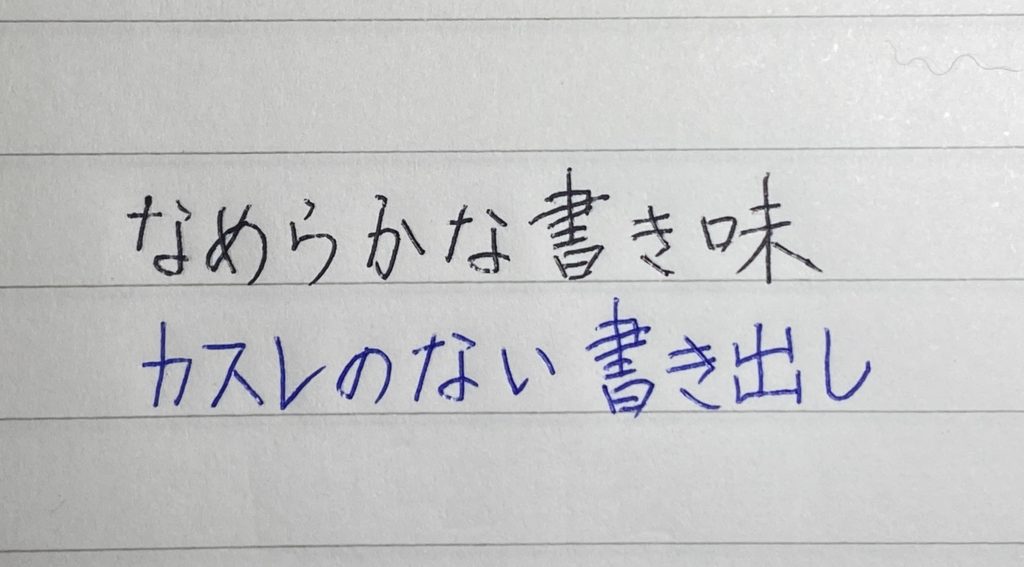 なめらかな書き味
カスレのない書き出し